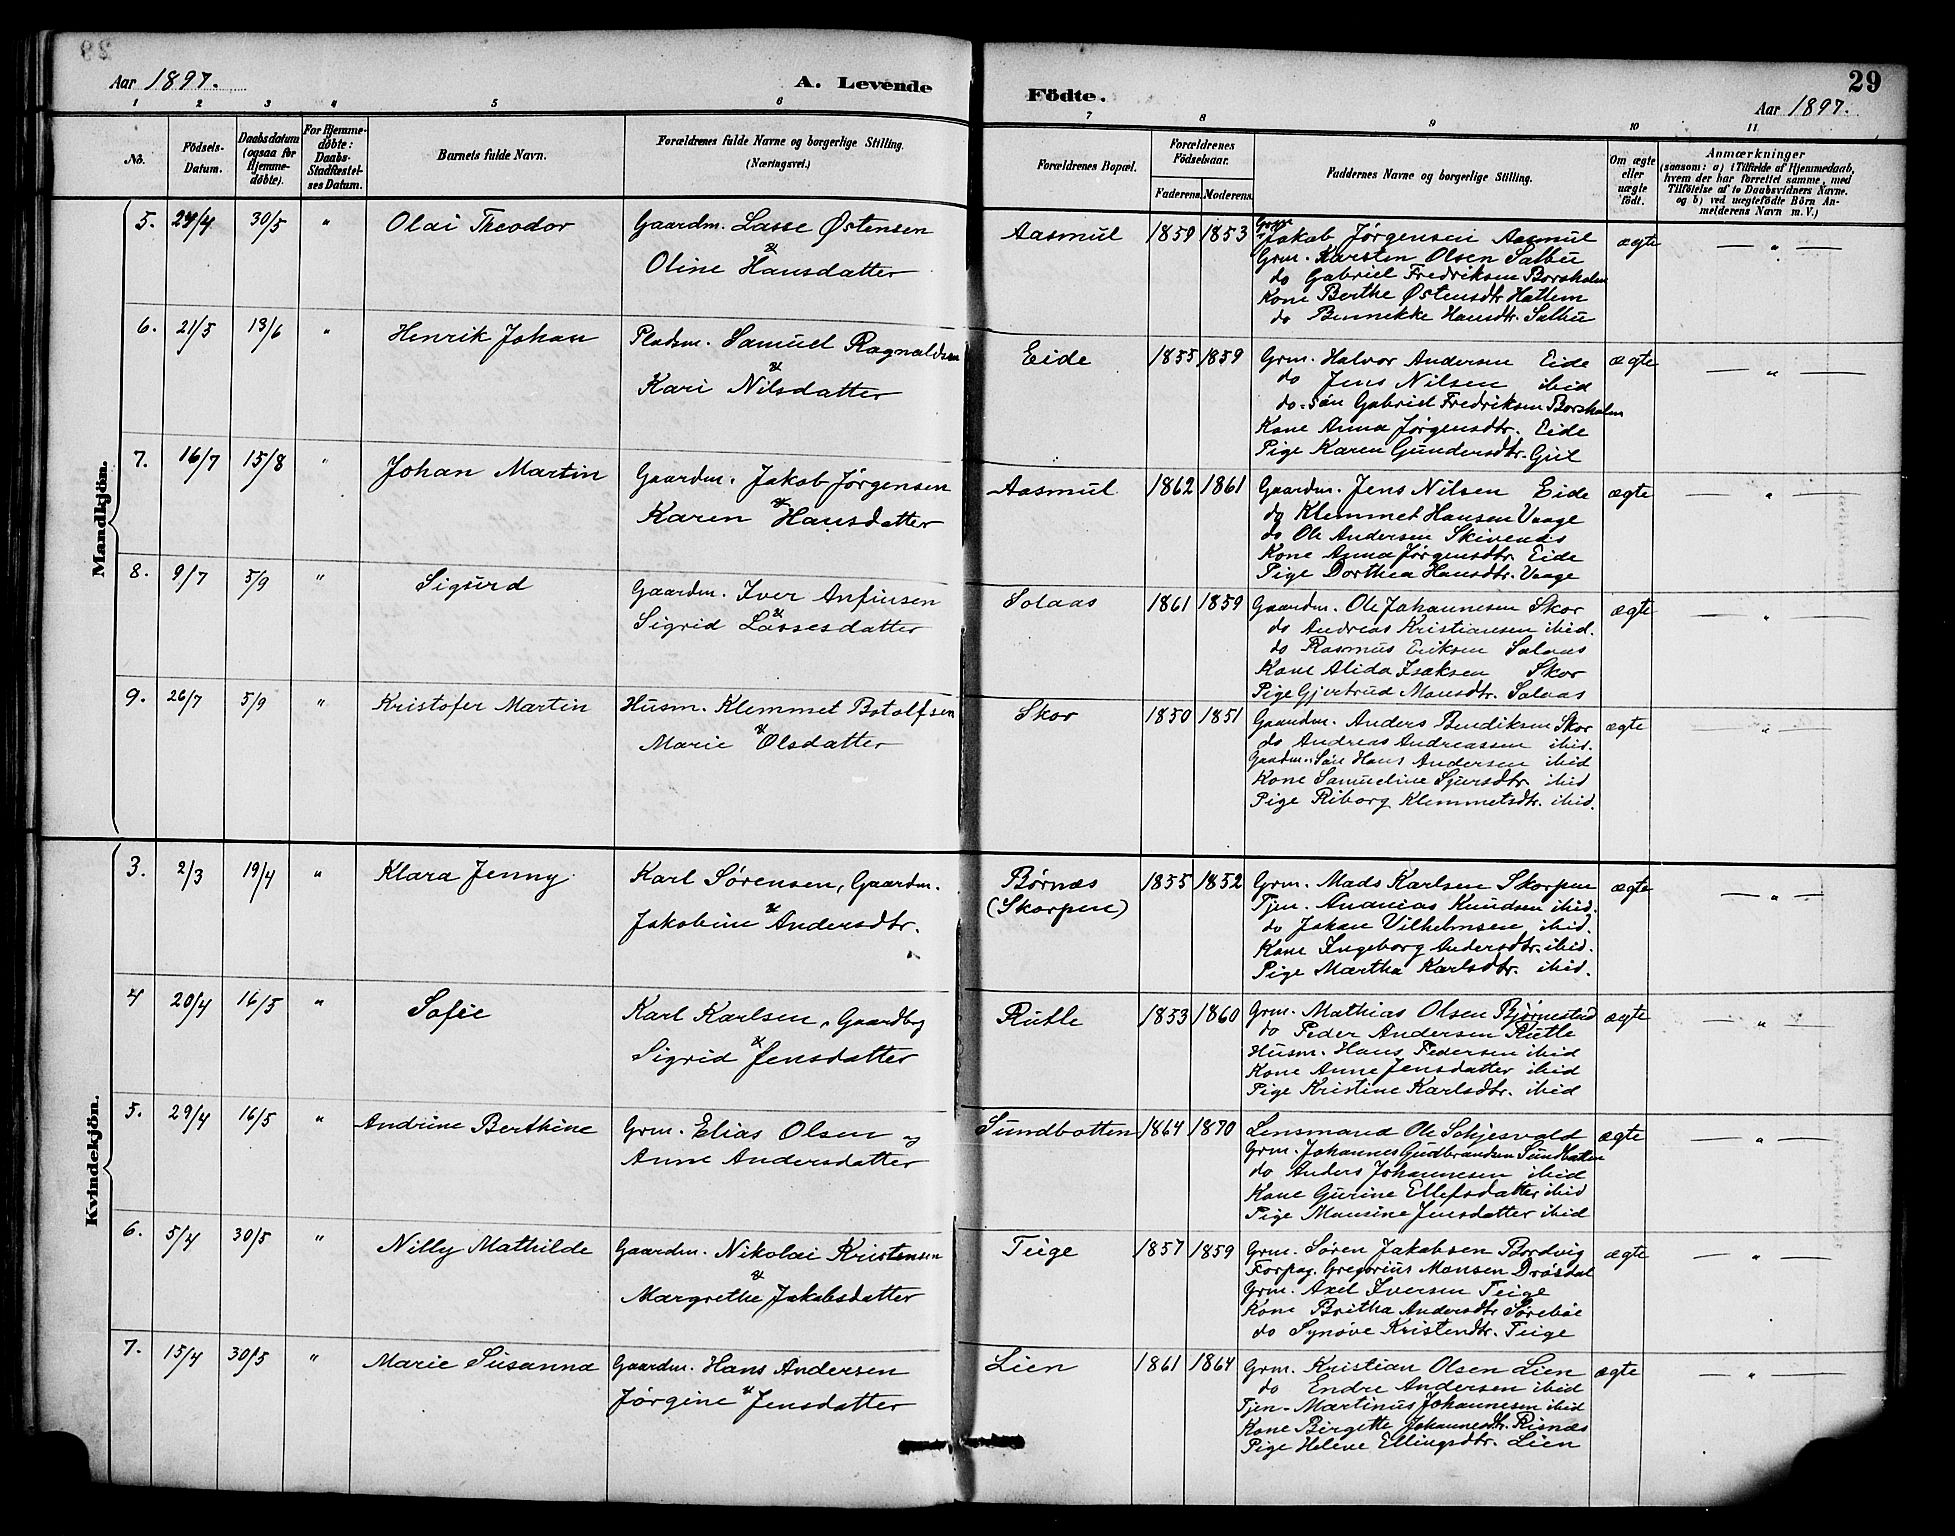 29
Aar 1897.
A. Levende Födte.
Aar 1897.
1 2 3 4 5 6 7 8 9 10 11
No.
Födsels-Datum.
Daabsdatum (ogsaa for Hjemme-döbte).
For Hjemme-döbte: Daabs-Stadfæstel-ses Datum.
Barnets fulde Navn.
Forældrenes fulde Navne og borgerlige Stilling. (Næringsvei.)
Forældrenes Bopæl.
Forældrenes Födselsaar.
Faderens. Moderens.
Faddernes Navne og borgerlige Stilling.
Om ægte eller uægte født.
Anmærkninger
(saasom: a) i Tilfælde af Hjemmedaab, hvem der har forrettet samme, med Tilföielse af to Daabsvidners Navne. og b) ved uægtefödte Börn An-melderens Navn m. V.)
Mandkjön.
5. 24/4 30/5 " Olai Theodor Gaardm. Lasse Østensen & Oline Hansdatter Aasmul 1859 1853 ægte — " —
Grm. Jakob Jørgensen Aasmul
Grm. Karsten Olsen Salbu
do Gabriel Fredriksen Borsholm
Kone Berthe Østensdtr. Hattem
do Bennekke Hansdtr. Salbu
6. 21/5 13/6 " Henrik Johan Pladsm. Samuel Ragnaldsen & Kari Nilsdatter Eide 1855 1859 ægte — " —
Grm. Halvor Andersen Eide
do Jens Nilsen ibid
do. Søn Gabriel Fredriksen Borsholm
Kone Anna Jørgensdtr. Eide
Pige Karen Gundersdtr. Gul
7. 16/7 15/8 " Johan Martin Gaardm. Jakob Jørgensen & Karen Hansdatter Aasmul 1862 1861 ægte — " —
Gaardm. Jens Nilsen Eide
do Klemmet Hansen Vaage
do Ole Andersen Skivenes
Kone Anna Jørgensdtr. Eide
Pige Dorthea Hansdtr. Vaage
8. 9/7 5/9 " Sigurd Gaardm. Iver Anfinsen & Sigrid Lassesdatter Solaas 1861 1859 ægte — " —
Gaardm. Ole Johannesen Skor
do Andreas Kristiansen ibid.
do Rasmus Eriksen Solaas
Kone Alida Isaksen Skor
Pige Gjertrud Monsdtr. Solaas
9. 26/7 5/9 " Kristofer Martin Husm. Klemmet Botolfsen & Marie Olsdatter Skor 1850 1851 ægte — " —
Gaardm. Anders Bendiksen Skor
do Andreas Andreassen ibid.
Gaardm. Søn Hans Andersen ibid
Kone Samueline Sjursdtr. ibid
Pige Riborg Klemmetsdtr. ibid.
Kvindekjön.
3. 2/3 19/4 " Klara Jenny Karl Sørensen, Gaardm. & Jakobine Andersdtr. Børnæs (Skorpen) 1855 1852 ægte — " —
Grm. Mads Karlsen Skorpen
Tjen. Ananias Knudsen ibid.
do Johan Vilhelmsen ibid.
Kone Ingeborg Andersdtr. ibid.
Pige Martha Karlsdtr. ibid.
4 20/4 16/5 " Sofie Karl Karlsen, Gaardbrg & Sigrid Jensdatter Rutle 1853 1860 ægte — " —
Grm. Mathias Olsen Bjørnestad
do Peder Andersen Rutle
Husm. Hans Pedersen ibid
Kone Anne Jensdatter ibid
Pige Kristine Karlsdtr. ibid
5. 29/4 16/5 " Andrine Berthine Grm. Elias Olsen og Anne Andersdatter Sundbotten 1864 1870 ægte — " —
Lensmand Ole Schjesvold
Grm. Johannes Gudbrandsen Sundbotten
do Anders Johannesen ibid
Kone Gurine Ellefsdatter ibid
Pige Monsine Jensdatter ibid
6. 5/4 30/5 " Nilly Mathilde Gaardm. Nikolai Kristensen & Margrethe Jakobsdatter Teige 1857 1859 ægte — " —
Grm. Søren Jakobsen Bordvig
Forpag. Gregorius Monsen Drøsdal
Grm. Axel Iversen Teige
Kone Britha Andersdtr. Sørebøe
do Synøve Kristendtr. Teige
7. 15/4 30/5 " Marie Susanna Gaardm. Hans Andersen & Jørgine Jensdatter Lien 1861 1864 ægte — " —
Grm. Kristian Olsen Lien
do Endre Andersen ibid
Tjen- Martinus Johannesen ibid
Kone Birgitte Johannesdtr. Risnæs
Pige Helene Ellingsdtr. Lien